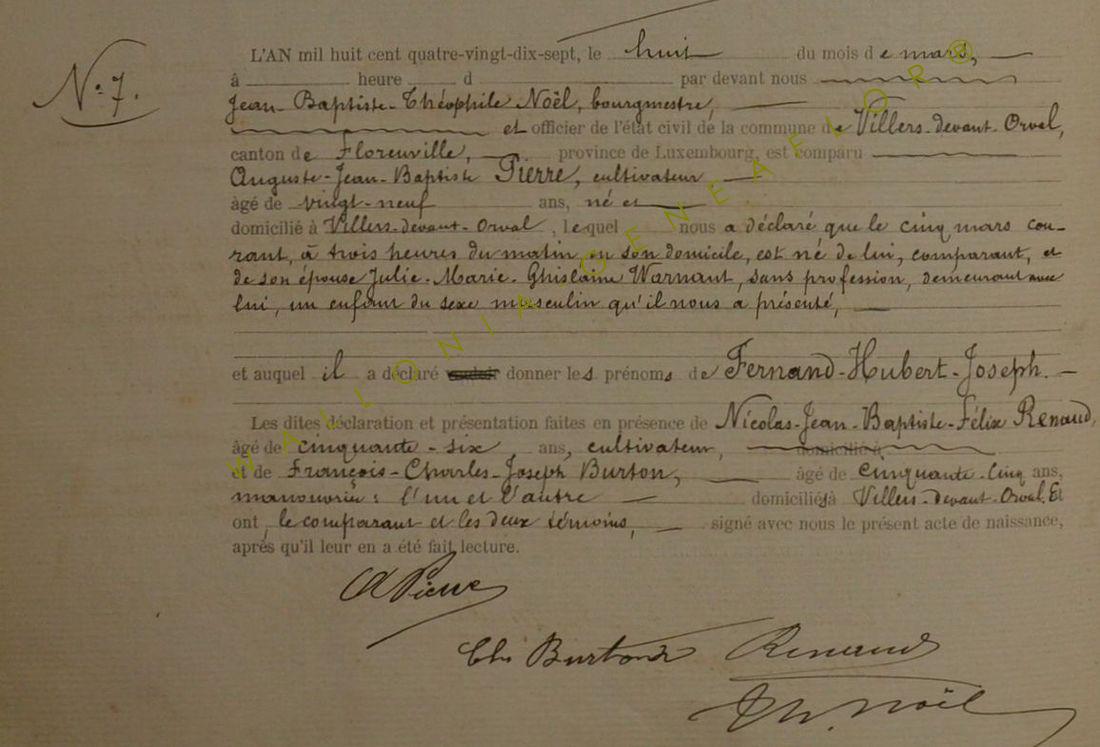 N.° 7.
L'AN mil huit cent quatre-vingt-dix-sept, le huit du mois de mars,
à heure d par devant nous
Jean-Baptiste-Théophile Noël, bourgmestre,
et officier de l'état civil de la commune de Villers-devant-Orval,
canton de Florenville, province de Luxembourg, est comparu
Auguste-Jean-Baptiste Pierre, cultivateur
âgé de vingt-neuf ans, né et
domicilié à Villers-devant-Orval, lequel nous a déclaré que le cinq mars cou-
rant, à trois heures du matin en son domicile, est né de lui, comparant, et
de son épouse Julie-Marie-Ghislaine Warnant, sans profession, demeurant avec
lui, un enfant du sexe masculin qu'il nous a présenté,
et auquel il a déclaré donner les prénoms de Fernand-Hubert-Joseph.
Les dites déclaration et présentation faites en présence de Nicolas-Jean-Baptiste-Félix Renaud,
âgé de cinquante-six ans, cultivateur, domicilié à
et de François-Charles-Joseph Burton, âgé de cinquante-cinq ans,
manouvrier: l'un et l'autre domiciliés à Villers-devant-Orval. Et
ont, le comparant et les deux témoins, signé avec nous le présent acte de naissance,
après qu'il leur en a été fait lecture.
A Pierre
Chs Burton Renaud
Th. Noël
WALLONIA GENEALOR®